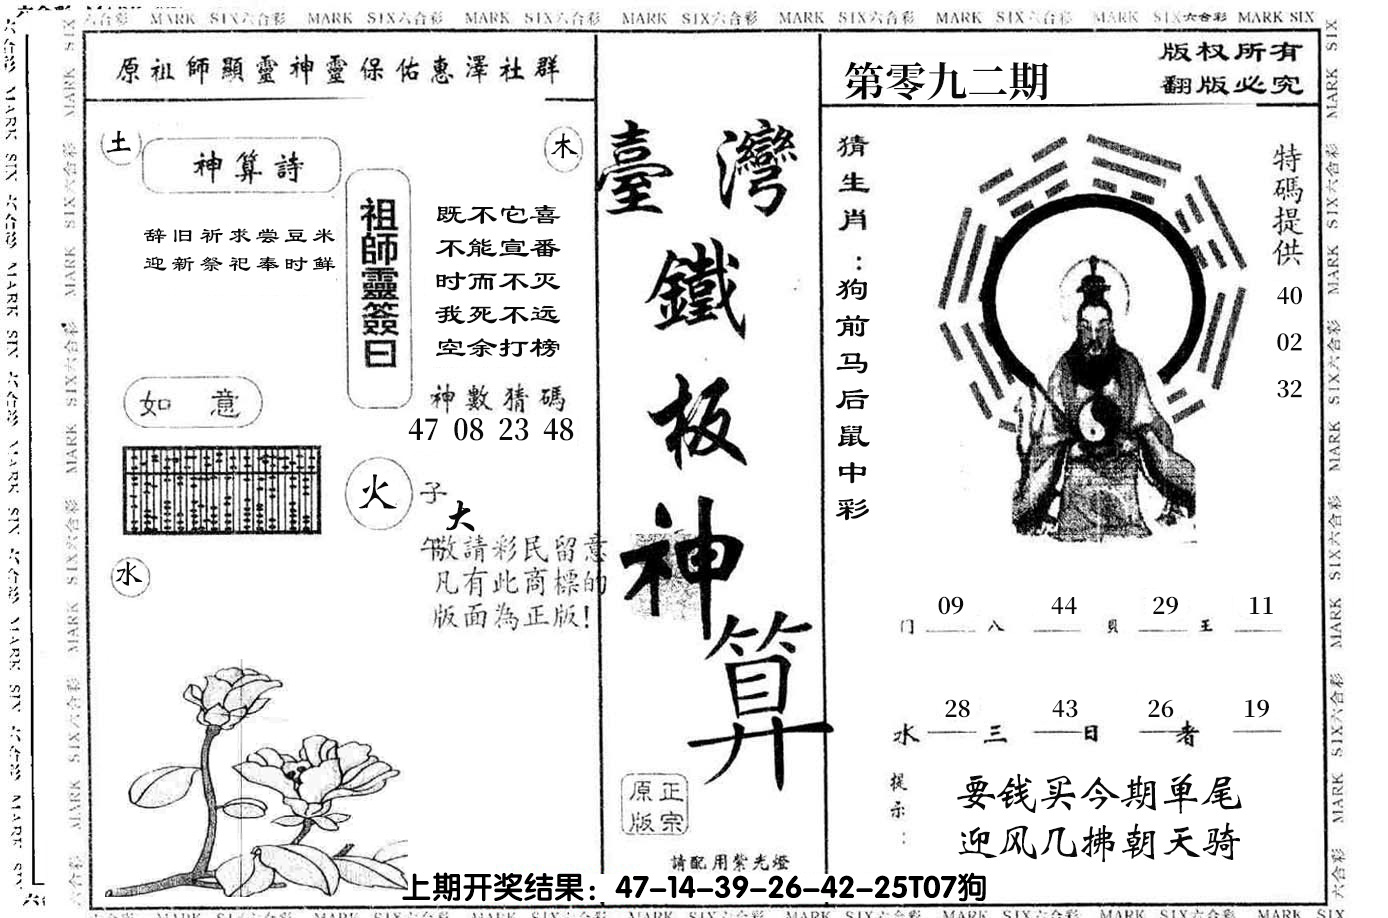 六合彩 MARK SIX六合彩 MARK SIX六合彩 MARK SIX六合彩 MARK SIX六合彩 MARK SIX六合彩 MARK SIX六合彩 MARK SIX六合彩 MARK SIX
原祖師顯靈神靈保佑惠澤社群
土
木
神算詩
辞旧祈求尝豆米
迎新祭祀奉时鲜
祖師靈簽曰
既不它喜
不能宣番
时而不灭
我死不远
空余打榜
神數猜碼
47 08 23 48
如 意
火
水
子
大
午
敬請彩民留意
凡有此商標的
版面為正版!
臺灣
鐵
板
神
算
正宗
原版
請配用紫光燈
第零九二期
版权所有
翻版必究
猜生肖:狗前马后鼠中彩
特碼提供
40
02
32
门 09 八 44 貝 29 王 11
水 28 三 43 日 26 者 19
提示:
要钱买今期单尾
迎风几拂朝天骑
上期开奖结果：47-14-39-26-42-25T07狗